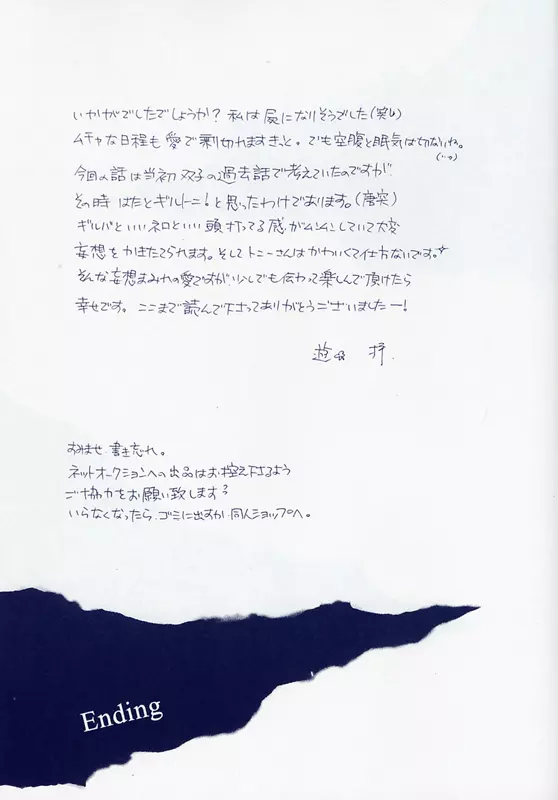 いかがでしたでしょうか? 私は屍になりそうでした(笑)
ムチャな日程も愛で乗り切れますきっと。でも空腹と眠気は切ないね。
今回の話は当初 双子の過去話で考えていたのですが
その時 はたとギルトニー!と思ったわけであります。(唐突)
ギルバといいネロといい 頭打ってる感がムンムンしていて大変
妄想をかきたてられます。そしてトニーさんはかわいくて仕方ないです。
そんな妄想まみれの愛ですが、少しでも伝わって楽しんで頂けたら
幸せです。ここまで読んで下さってありがとうございましたー!
すみませ、書き忘れ。
ネットオークションへの出品はお控え下さるよう
ご協力をお願い致します
いらなくなったら、ゴミに出すか、同人ショップへ。
Ending